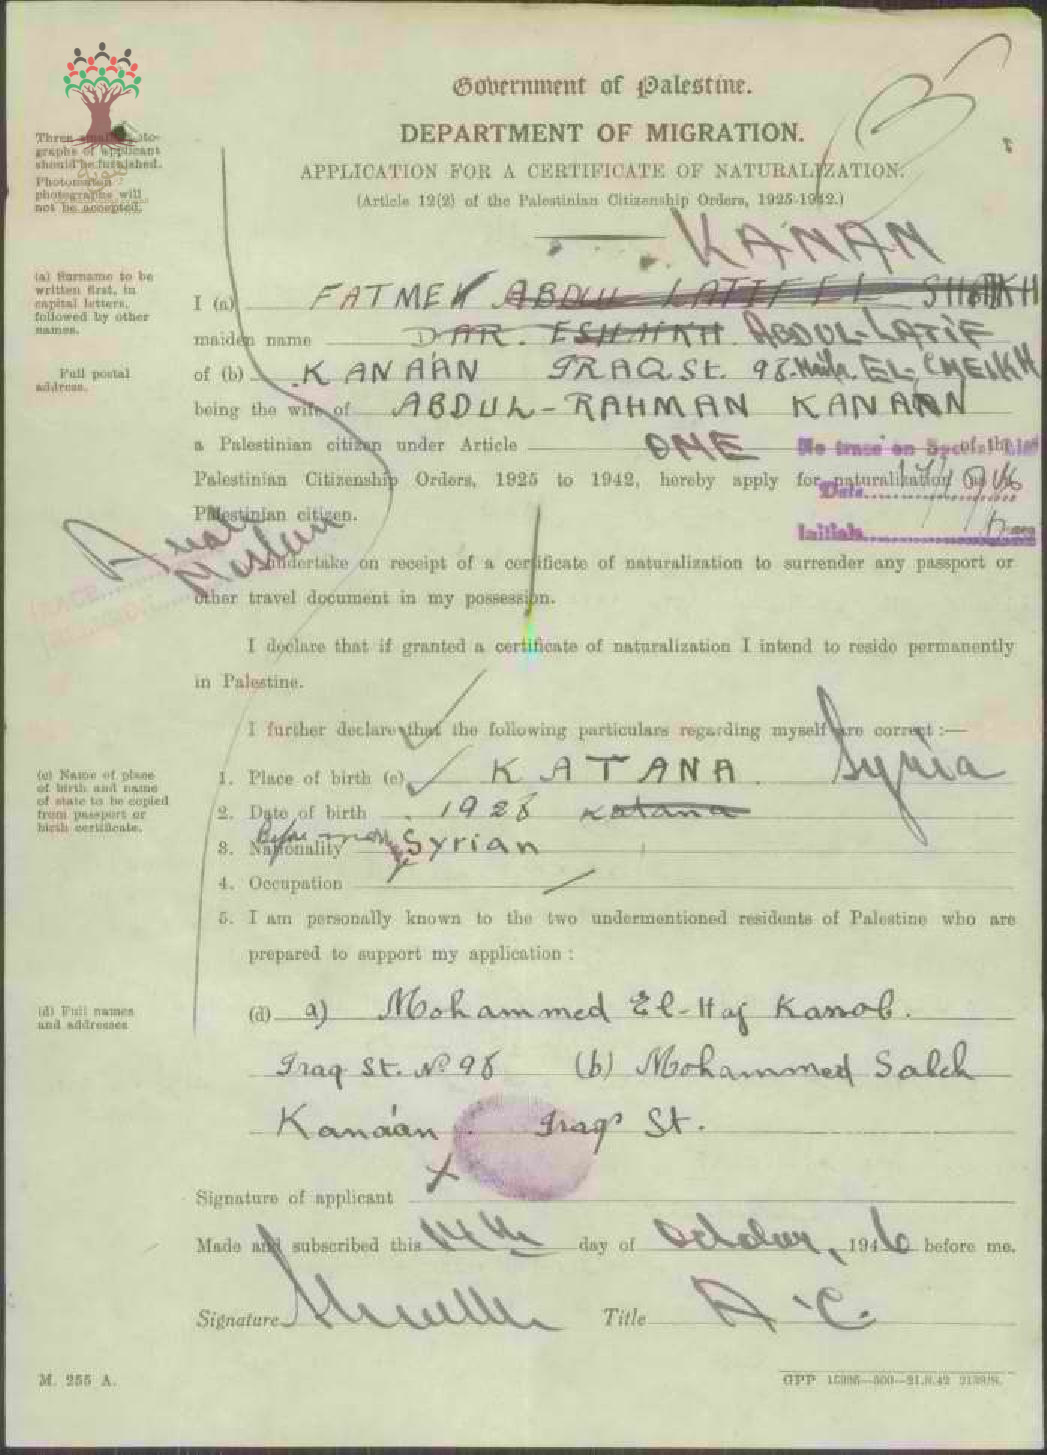 Government of Palestine.
DEPARTMENT OF MIGRATION.
APPLICATION FOR A CERTIFICATE OF NATURALIZATION.
(Article 12(2) of the Palestinian Citizenship Orders, 1925-1942.)
Three small photographs of applicant should be furnished.
Photomaton photographs will not be accepted.
KANAN
(a) Surname to be written first, in capital letters, followed by other names.
I (a) FATMEH ABDUL LATIF EL SHEIKH
maiden name DAR. ESHAIKH ABDUL-LATIF
Full postal address.
of (b) KANAAN IRAQ St. 98 Haifa. EL-CHEIKH
being the wife of ABDUL-RAHMAN KANAAN
a Palestinian citizen under Article ONE of the
No trace on Special List
Palestinian Citizenship Orders, 1925 to 1942, hereby apply for naturalization as a
Date
Palestinian citizen.
Initials
Arab
Moslem
I undertake on receipt of a certificate of naturalization to surrender any passport or
other travel document in my possession.
I declare that if granted a certificate of naturalization I intend to reside permanently
in Palestine.
I further declare that the following particulars regarding myself are correct :—
(c) Name of place of birth and name of state to be copied from passport or birth certificate.
1. Place of birth (c) KATANA Syria
2. Date of birth 1928 Katana
Before marr
3. Nationality Syrian
4. Occupation
5. I am personally known to the two undermentioned residents of Palestine who are
prepared to support my application :
(d) Full names and addresses
(d) a) Mohammed El-Haj
Iraq St. No 98 (b) Mohammed Saleh
Kanáan Iraq St.
X
Signature of applicant
Made and subscribed this 14th day of October, 1946 before me.
Signature Title A.C.
M. 255 A.
GPP 15336—500—21.8.42